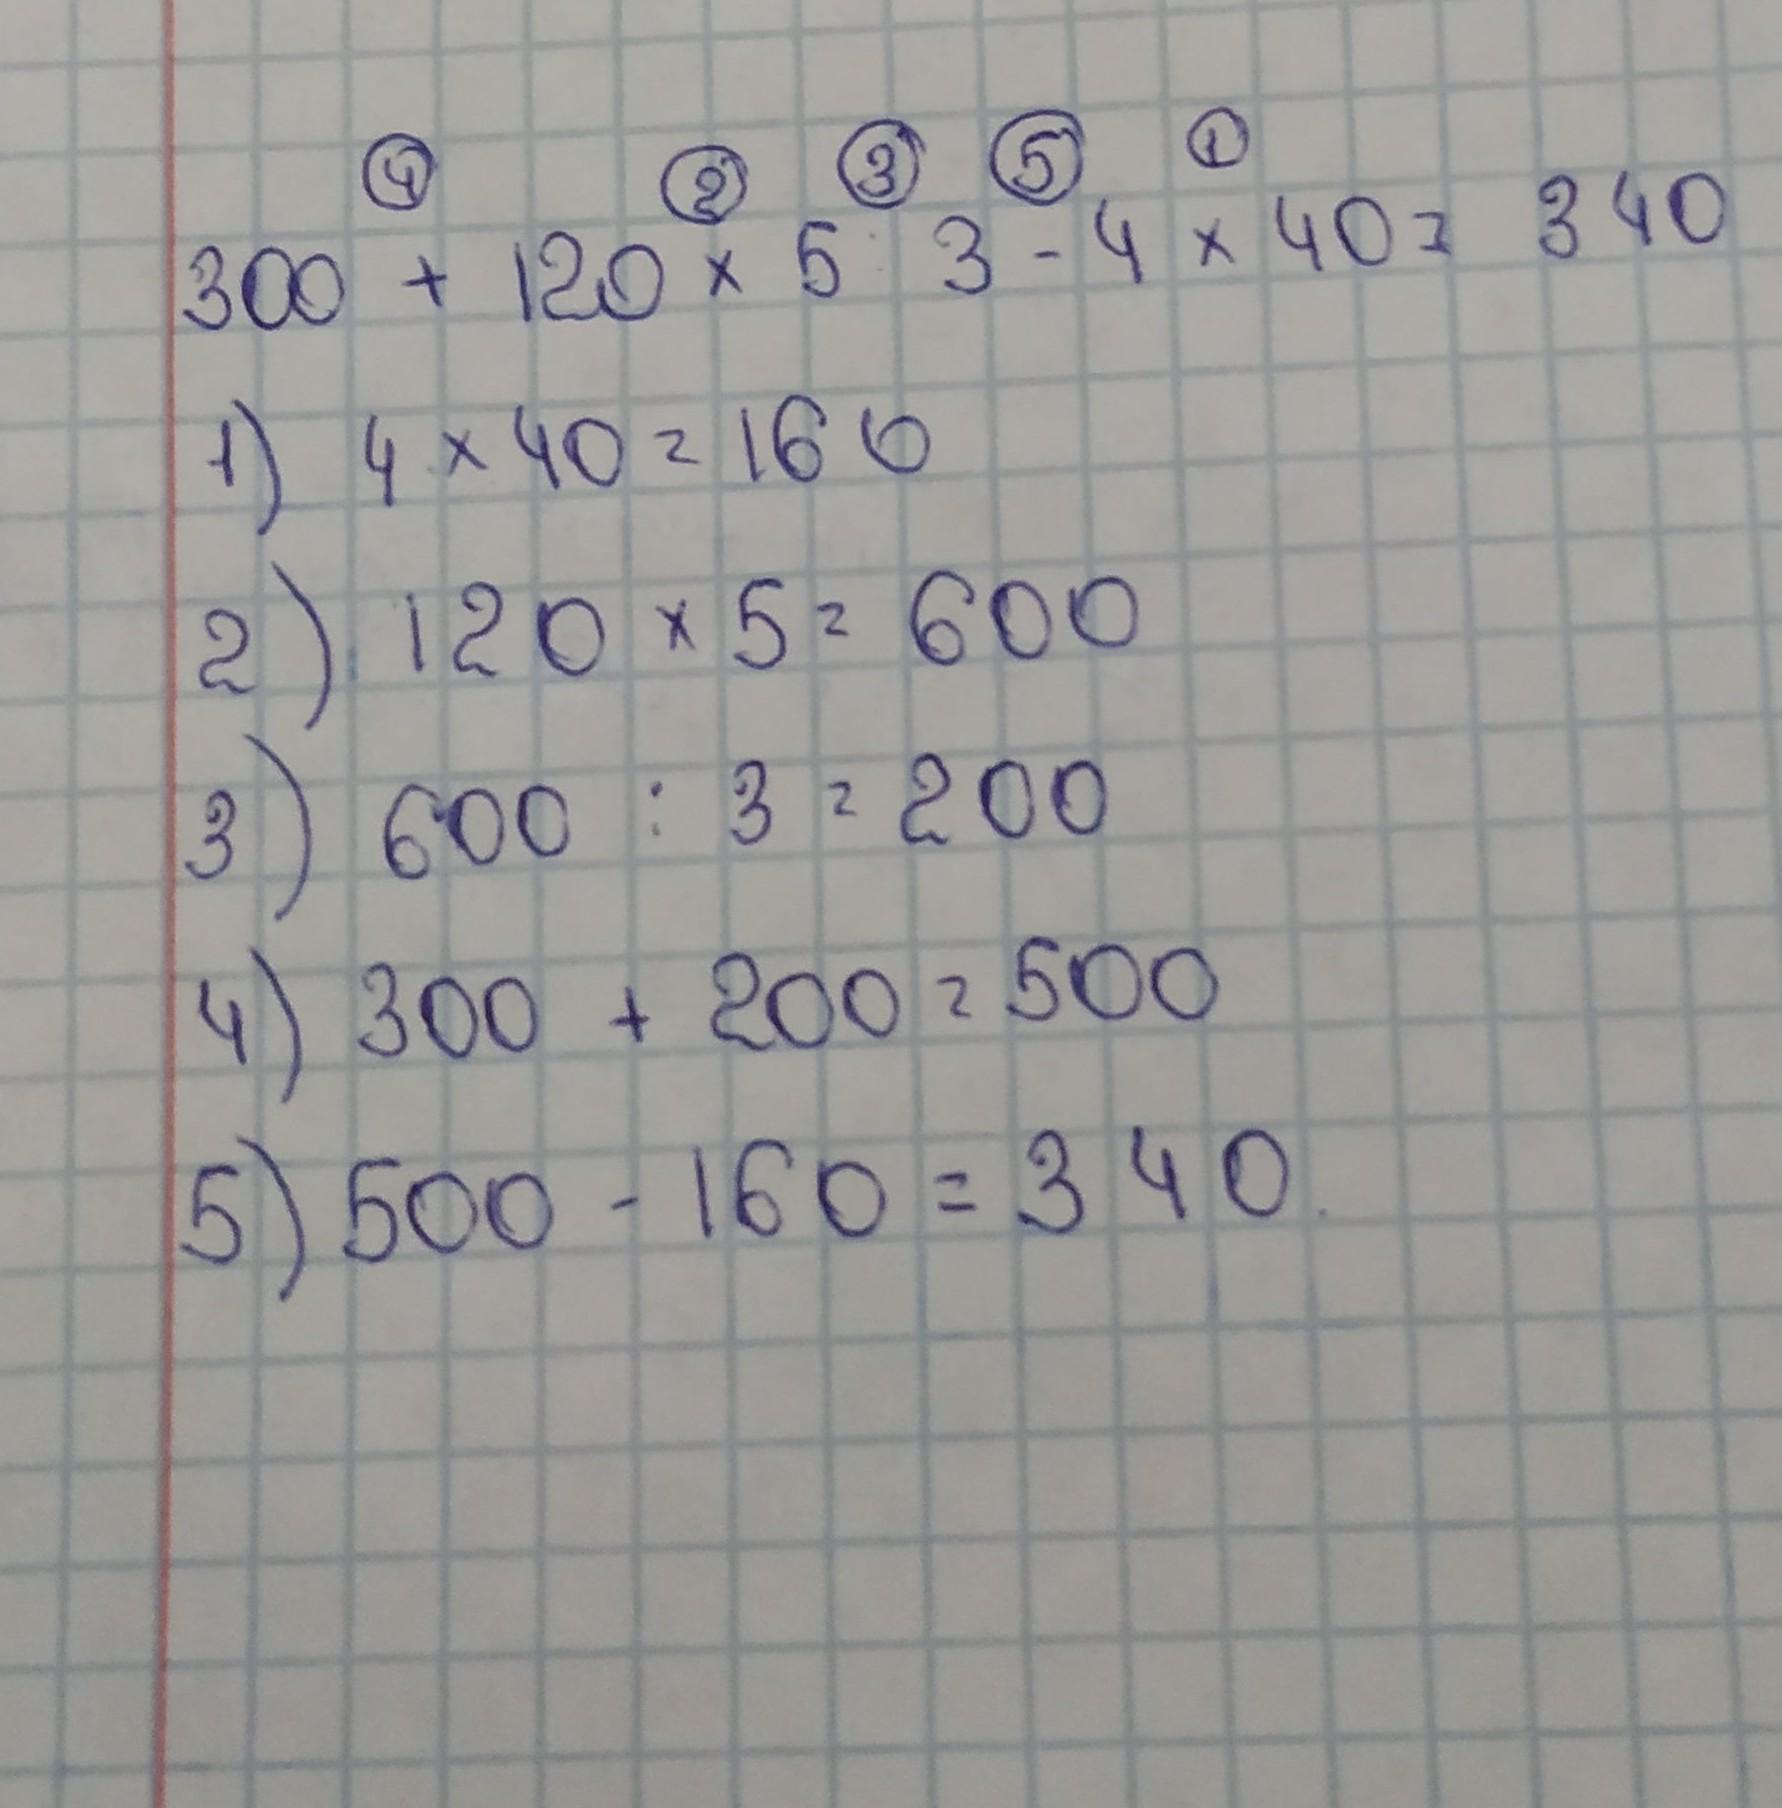 ④ ② ③ ⑤ ①
300 + 120 × 5 : 3 - 4 × 40 = 340
1) 4 × 40 = 160
2) 120 × 5 = 600
3) 600 : 3 = 200
4) 300 + 200 = 500
5) 500 - 160 = 340